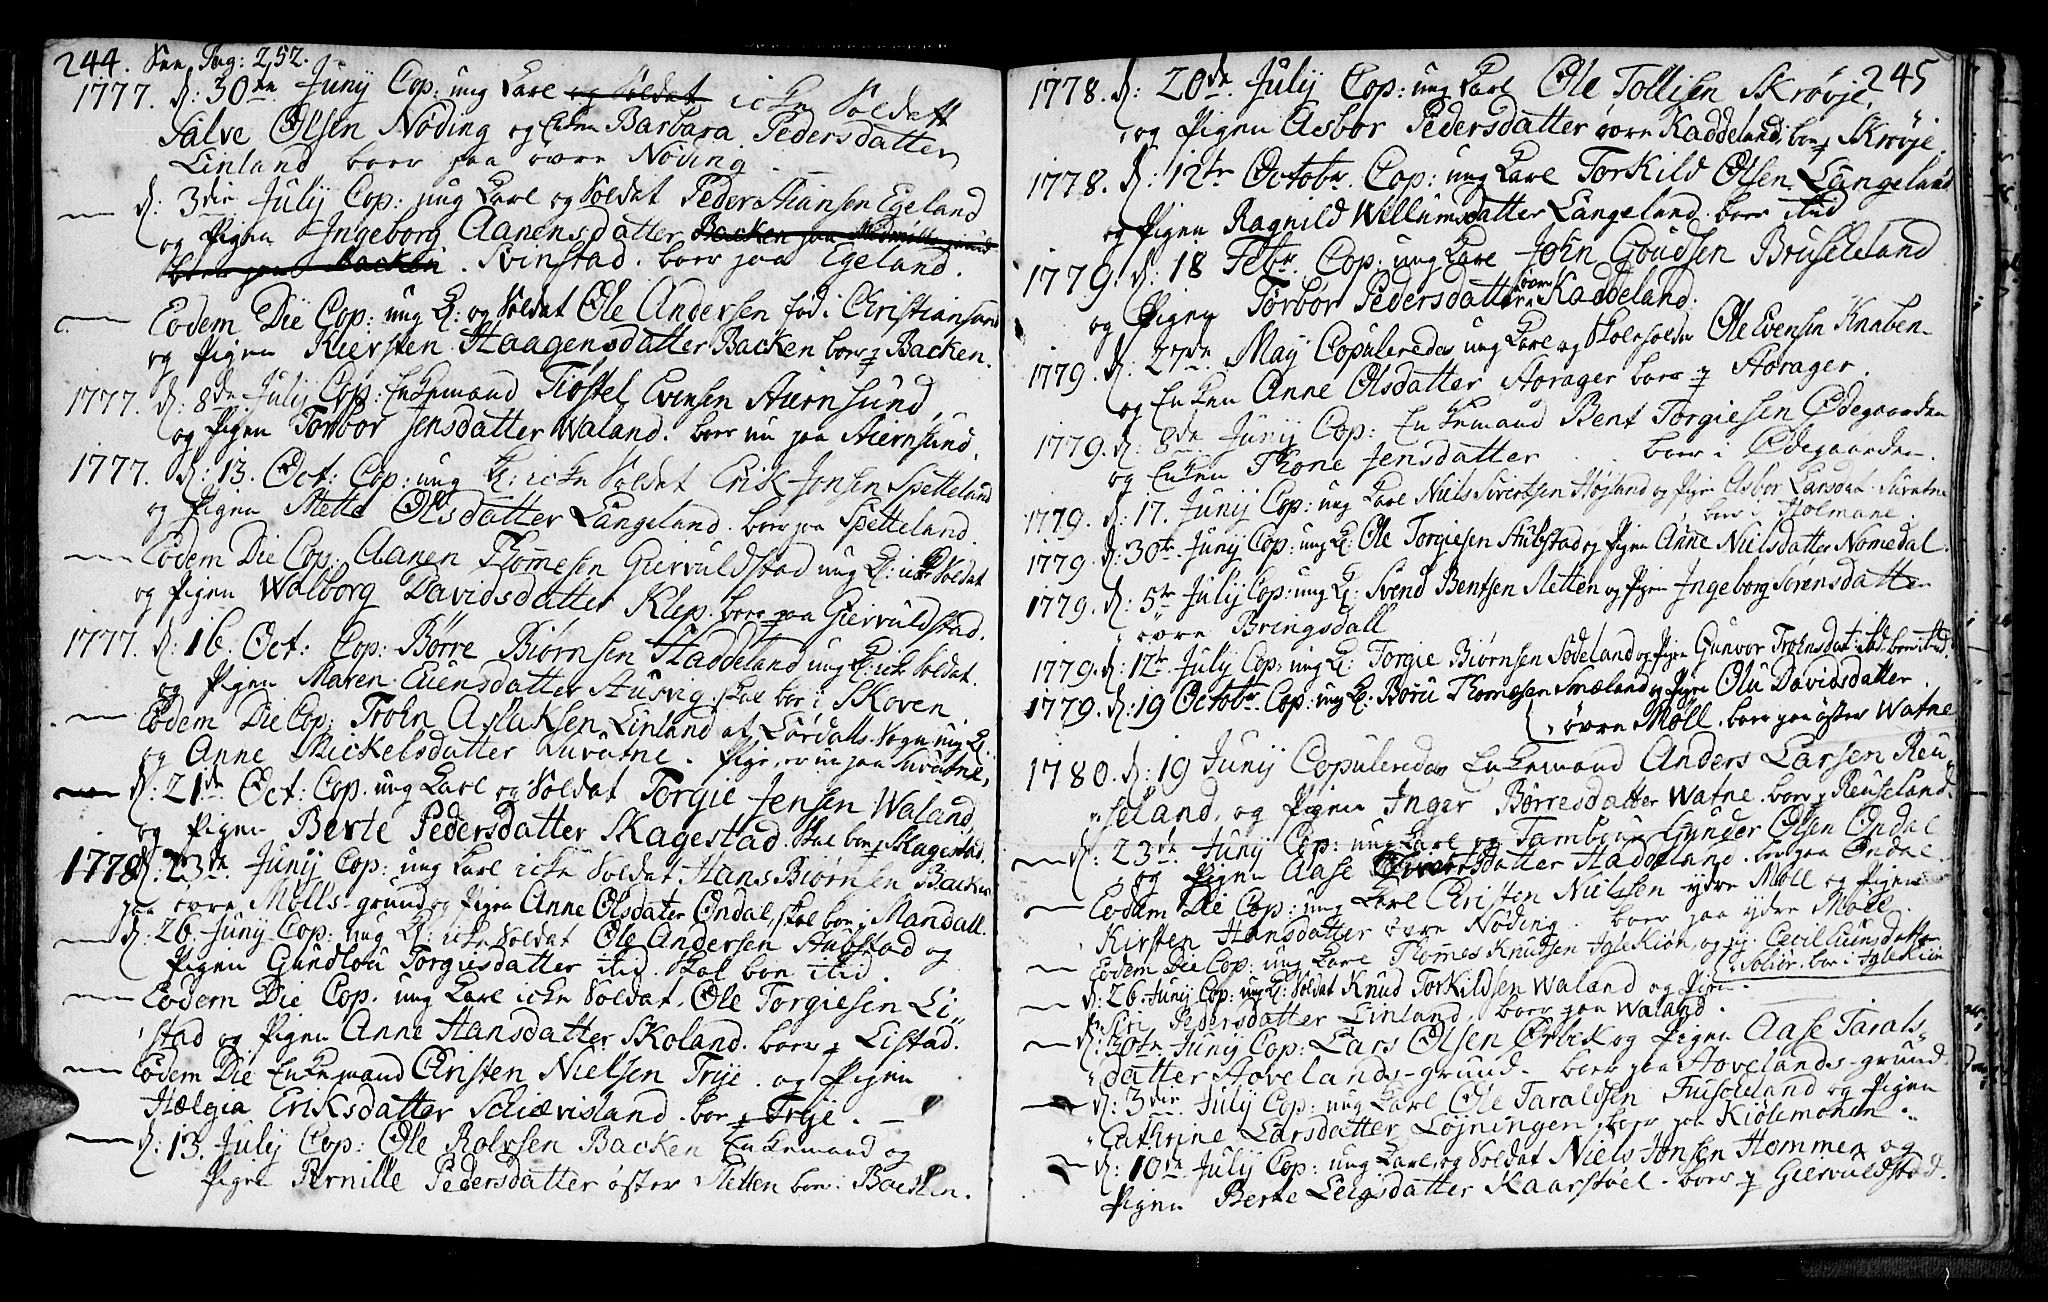 244. See Pag: 252.
1777. d: 30te Junij Cop: ung Karl og Soldat icke Soldatt
Salve Olsen Nøding og Enken Barbara Pedersdatter
Linland boer paa øvre Nøding
— d: 3die Julij Cop: ung Karl og Soldat Peder Egeland
og Pigen Ingeborg Aanensdatter Backen paa
boer paa Backen. Svinstad. boer paa Egeland.
— Eodem Die Cop: ung K: og Soldat Ole Andersen fød i Christiansand
og Pigen Kiersten Haagensdatter Backen boer p Backen.
1777. d: 8de Julij Cop: Enkemand Tiøstel Evensen Aiernsund,
og Pigen Torbor Jensdatter Waland. boer nu paa Aiernsund.
1777. d: 13. Oct: Cop: ung K: icke Soldat Erik Jonsen Spetteland
og Pigen Mette Olsdatter Langeland. boer paa Spetteland.
— Eodem Die Cop: Aanen Thomesen Giervuldstad ung K: icke Soldat
og Pigen Walborg Davidsdatter Klep. boer paa Giervuldstad.
1777. d: 16. Oct: Cop: Børre Biørnsen Haddeland ung K: icke Soldat.
og Pigen Maren Euensdatter Ausvig skal boe i Skoven
— Eodem Die Cop: Troen Aslaksen Linland af Lördalls Sogn ung K.
og Anne Mickelsdatter Luvatne. Pige, er nu paa Luvatne,
— d: 21de Oct: Cop: ung Karl og Soldat Torgie Jensen Waland,
og Pigen Berte Pedersdatter Skagestad. Skal boe p Skagestad.
1778 d: 23de Junij Cop: ung Karl icke Soldat Hans Biørnsen Backen
paa øvre Mølls-grund og Pigen Anne Olsdater Ondal, skal boe i Mandall.
— d: 26 Junij Cop: ung K: icke Soldat Ole Andersen Stubstad og
Pigen Gundlou Torgiesdatter itid. Skal boe itid.
— Eodem Die Cop. ung Karl icke Soldat. Ole Torgiesen Li„
stad og Pigen Anne Hansdatter Skoland. boer p Listad.
— Eodem Die Enkemand Christen Nielsen Trye. og Pigen
Hælgia Eriksdatter Schiævisland. boe p Trye.
— d: 13. July Cop: Ole Rolvsen Backen Enkemand og
Pigen Pernille Pedersdatter øster Sletten boer i Backen.
245
1778. d: 20de Julij Cop: ung Karl Ole Tollisen Skrøvje,
og Pigen Aasbor Pedersdatter øvre Kaddeland, boe p Skrøje.
1778. d: 12te Octobr. Cop: ung Karl Torkild Olsen Langeland
og Pigen Ragnild Willumsdatter Langeland. boer itid
1779. d: 18 Febr. Cop: ung Karl John Goudsen Bruseleland
og Pigen Torbor Pedersdatter øvre Kaddeland.
1779. d: 27de Maij Copuleredes ung Karl og Skoleholder Ole Evensen Knaben-
og Enken Anne Olsdatter Aorager boer p Aorager.
1779. d: 8de Junij Cop: Enkemand Bent Torgiesen Ødegaarden
og Enken Thone Jensdatter boer i Ødegaarden.
1779. d: 17. Junij Cop: ung Karl Niels Sivertsen Højland og Pigen Asbor Larsdat. Luvatne
boe i Holmane.
1779. d: 30te Junij Cop: ung K: Ole Torgiesen Stubstad og Pigen Anne Nielsdatter Nomedal.
1779. d: 5te Julij Cop: ung K: Svend Bentsen Sletten og Pigen Ingeborg Sørensdatter
øvre Bringsdall
1779. d: 12te July Cop: ung K: Torgie Biørnsen Sodeland og Pigen Gunvor Troensdat: ibd. boe itid.
1779. d: 19 Octobr. Cop: ung K: Børu Thomesen Smæland og Pigen Olu Davidsdatter.
øvre Møll. boer paa øster Watne
1780. d: 19 Junij Copuleredes Enkemand Anders Larsen Reu„
„seland, og Pigen Inger Børresdatter Watne. boer p Reuseland.
— d: 23de Junij Cop: ung Karl og Tambour Gunder Olsen Ondal
og Pigen Aase Sivertsdatter Haddeland. boe paa Ondal
— Eodem Die Cop: ung Karl Christen Nielsen ydre Møll og Pigen
Kirsten Hansdatter øvre Nøding. boer paa ydre Møll.
— Eodem Die Cop: ung Karl Thomes Knudsen Iglekiøn, og pig. Cecil Euensdatter
boe i Iglekiøn
— d: 26 Junij Cop: ung K: Soldat Knud Torkildsen Waland og Pigen
Siri Pedersdatter Linland, boer paa Waland.
— d: 30te Junij Cop: Lars Olsen Ørbek og Pigen Aase Tarals„
„datter Hovelands-grund boer paa Hovelands-grund.
— d: 3die Julij Cop: ung Karl Ole Taraldsen Fuseland og Pigen
Cathrine Larsdatter Løjningen, boer paa Kiølemohen.
— d: 10de Julij Cop: ung Karl og Soldat Niels Jonsen Hommen og
Pigen Berte Leigsdatter Kaarstøel. boer p Giervuldstad.